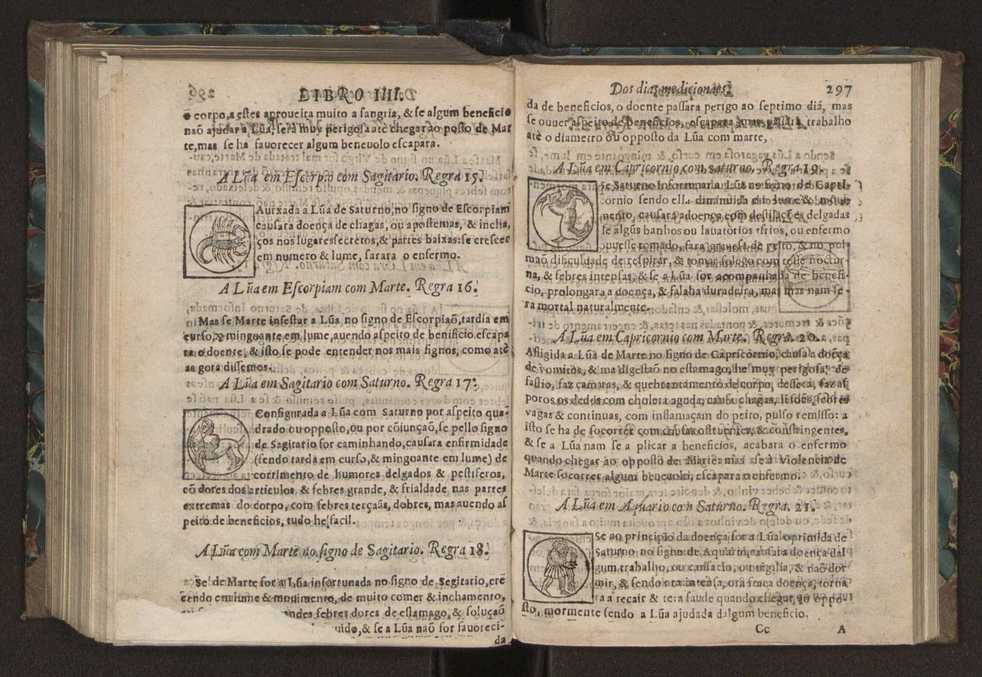 296
LIBRO IIII.
o corpo, a estes aproueita muito a sangria, & se algum beneficio
naõ ajudar a Lũa, será muy perigosa até chegar ao posto de Mar
te, mas se ha fauorecer algum beneuolo escapara.
A Lũa em Escorpiõ com Sagitario. Regra 15.
Aurxada a Lũa de Saturno, no signo de Escorpiam
causara doença de chagas, ou apostemas, & incha,
ços nos lugares secretos, & partes baixas: se crescer
em numero & lume, sarara o enfermo.
A Lũa em Escorpiam com Marte. Regra 16.
Mas se Marte infestar a Lũa no signo de Escorpiaõ, tardia em
curso, & mingoante em lume, auendo aspeito de benificio escapa
ra o doente, & isto se pode entender nos mais signos, como atè
as gora dissemos.
A Lũa em Sagitario com Saturno. Regra 17.
Configurada a Lũa com Saturno por aspeito qua-
drado ou opposto, ou por cõiunçaõ, se pello signo
de Sagitario for caminhando, causara enfirmidade
(sendo tarda em curso, & mingoante em lume) de
corrimento de humores delgados & pestiferos,
cõ dores dos articulos, & febres grande, & frialdade nas partes
extremas do corpo, com febres terçaãs, dobres, mas auendo as
peito de beneficios, tudo he facil.
A Lũa com Marte no signo de Sagitario. Regra 18.
Se de Marte for a Lũa infortunada no signo de Segitario, crê
cendo em lume & mouimento, de muito comer & inchamento,
andes febres dores de estamago, & soluçaõ
uido, & se a Lũa naõ for fauoreci-
da
Dos dias medicionaes 297
da de beneficios, o doente passara perigo ao septimo dia, mas
se ouuer aspeito de beneficios, escapara, mas passara trabalho
até o diametro ou opposto da Lũa com marte,
A Lũa em Capricornio com saturno. Regra 19.
Se Saturno informar a Lũa no signo de Capri-
cornio sendo ella diminuida em lume & moui-
mento, causara a doença com destilações delgadas
se algũs banhos ou lauatorios frios, ou enfermo
ouuesse tomado, fara graueza de peito, & no pul
maõ dificuldade de respirar, & tomar folego com tosse noctur
na, & febres intensas, & se a Lũa for acompanhada de benefi-
cio, prolongara a doença, & falaha duradeira, mas nam se-
ra mortal naturalmente.
A Lũa em Capricornio com Marte. Regra. 20.
Afligida a Lũa de Marte no signo de Capricornio, causa a doeça
de vomitos, & ma digestaõ no estomago, he muy perigosa, de
fastio, faz camaras, & quebrantamento de corpo, desseca, faz as
poros os dedos, com cholera agoda, causa chagas, lesões, febres
vagas & continuas, com inflamaçam do peito, pulso remisso: a
isto se ha de socorrer com causas & constringentes,
& se a Lũa nam se a plicar a beneficios, acabara o enfermo
quando chegar ao opposto de Marte: mas se á Violencia de
Marte socorrer algum beneuolo, escapara o enfermo.
A Lũa em Aquario con Saturno. Regra. 21.
Se ao principio da doença for a Lũa oprimida de
saturno no signo de Aquario, causara doença dal
gum trabalho, ou cassacio, ou vegilia, & naõ dor
mir, & sendo ora intensa, ora fraca doença, torna
ra a recair & tera saude quando chegar ao oppo-
sto, mormente sendo a Lũa ajudada dalgum beneficio.
Cc A